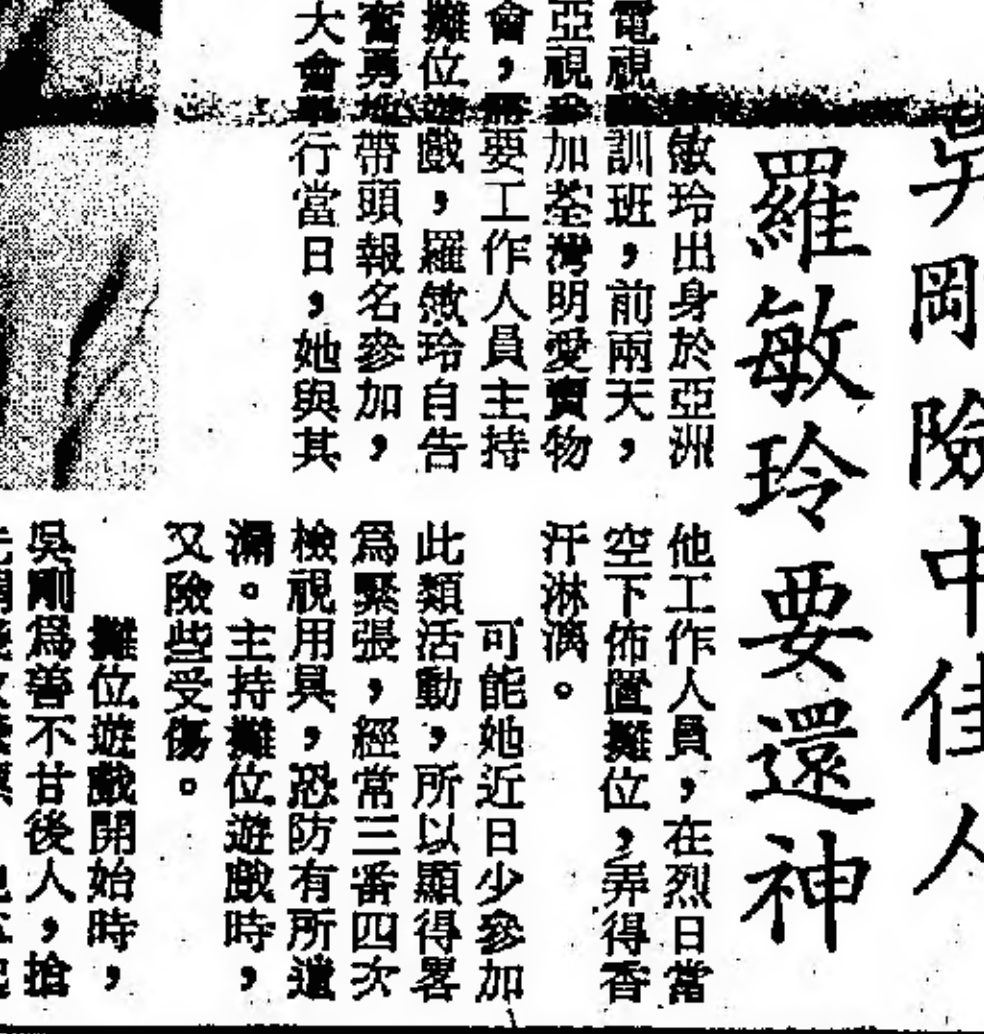 吳剛險中佳人
羅敏玲要還神
敏玲出身於亞洲
電視訓班，前兩天，
亞視參加荃灣明愛賣物
會，需要工作人員主持
攤位遊戲，羅敏玲自告
奮勇地帶頭報名參加，
大會舉行當日，她與其
他工作人員，在烈日當
空下佈置攤位，弄得香
汗淋漓。
可能她近日少參加
此類活動，所以顯得畧
爲緊張，經常三番四次
檢視用具，恐防有所遺
漏。主持攤位遊戲時，
又險些受傷。
攤位遊戲開始時，
吳剛爲善不甘後人，搶